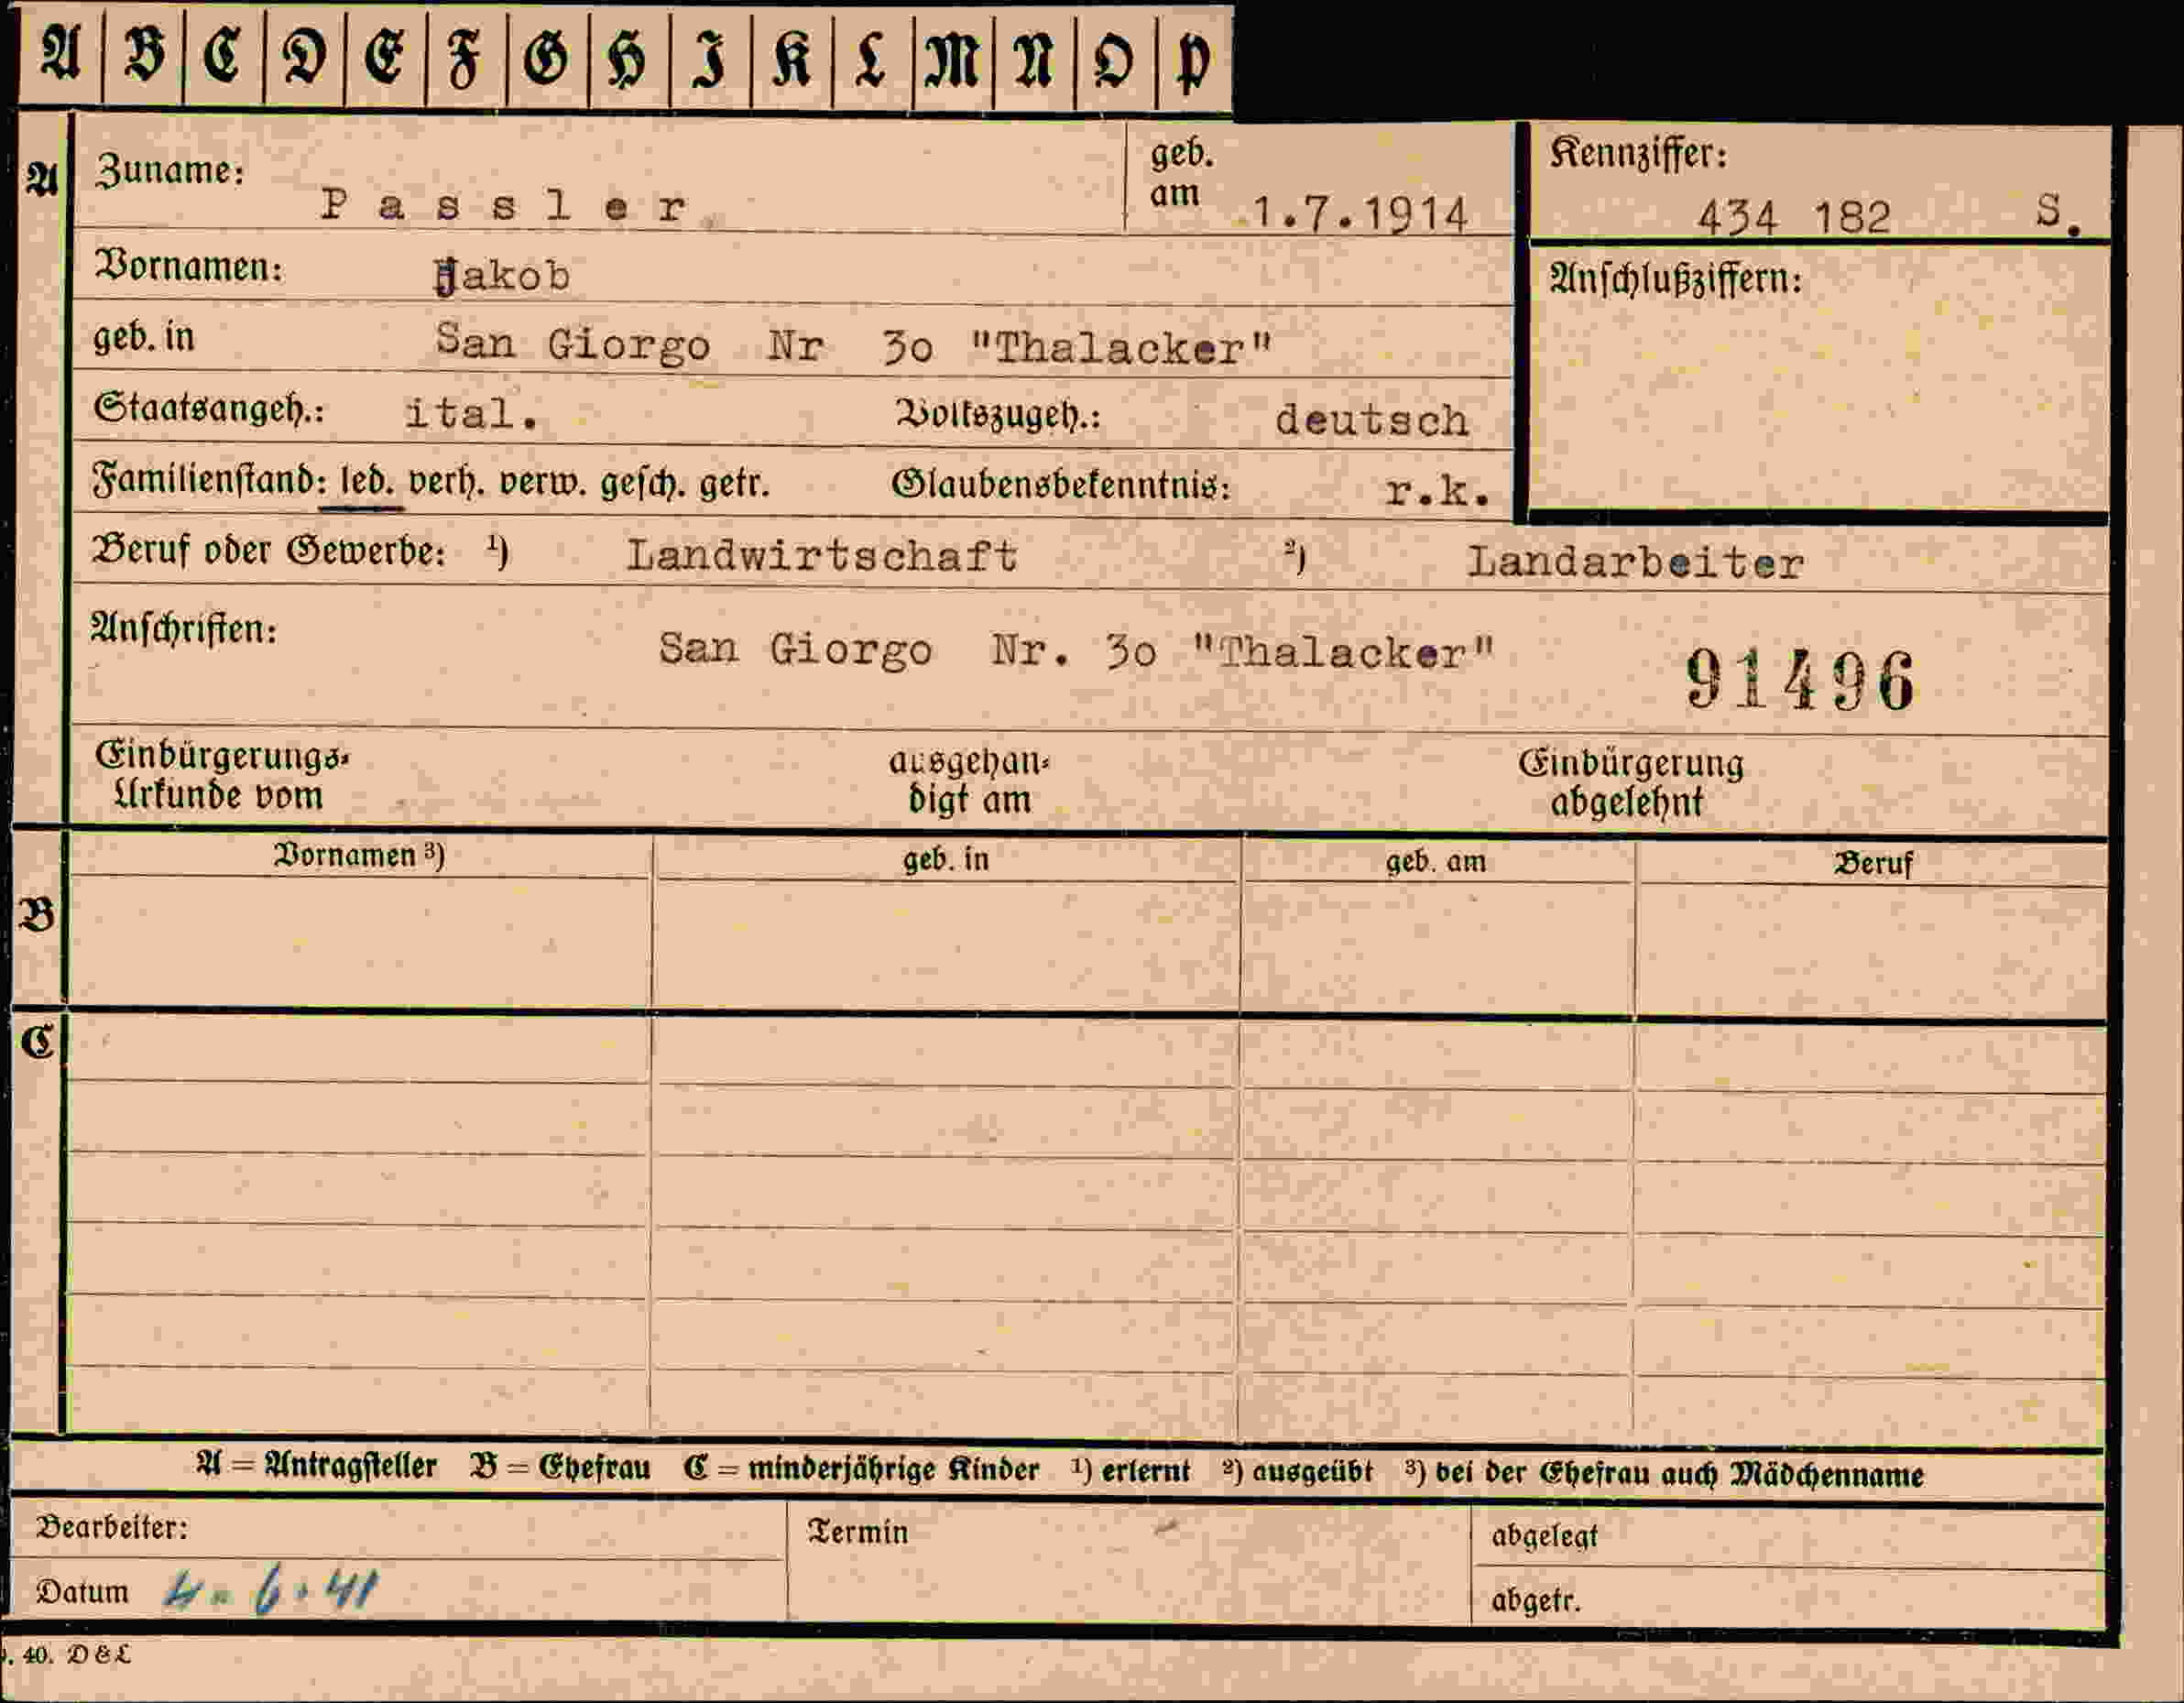 A B C D E F G H I K L M N O P
A Zuname: Passler geb. am 1.7.1914 Kennziffer: 434 182 S.
Vornamen: Jakob Anschlußziffern:
geb. in San Giorgo Nr 3o "Thalacker"
Staatsangeh.: ital. Volkszugeh.: deutsch
Familienstand: led. verh. verw. gesch. getr. Glaubensbekenntnis: r.k.
Beruf oder Gewerbe: ¹) Landwirtschaft ²) Landarbeiter
Anschriften: San Giorgo Nr. 3o "Thalacker" 91496
Einbürgerungs- ausgehän- Einbürgerung
Urkunde vom digt am abgelehnt
Vornamen ³) geb. in geb. am Beruf
B
C
A = Antragsteller B = Ehefrau C = minderjährige Kinder ¹) erlernt ²) ausgeübt ³) bei der Ehefrau auch Mädchenname
Bearbeiter: Termin abgelegt
Datum 4. 6. 41 abgetr.
. 40. D & L